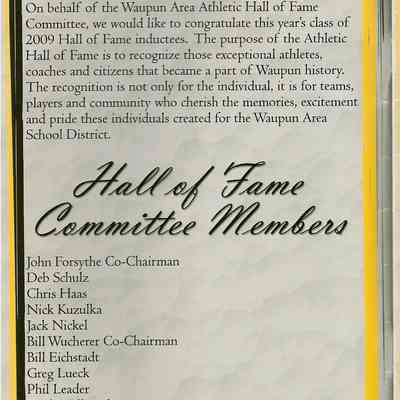 On behalf of the Waupun Area Athletic Hall of Fame
Committee, we would like to congratulate this year's class of
2009 Hall of Fame inductees. The purpose of the Athletic
Hall of Fame is to recognize those exceptional athletes,
coaches and citizens that became a part of Waupun history.
The recognition is not only for the individual, it is for teams,
players and community who cherish the memories, excitement
and pride these individuals created for the Waupun Area
School District.
Hall of Fame
Committee Members
John Forsythe Co-Chairman
Deb Schulz
Chris Haas
Nick Kuzulka
Jack Nickel
Bill Wucherer Co-Chairman
Bill Eichstadt
Greg Lueck
Phil Leader